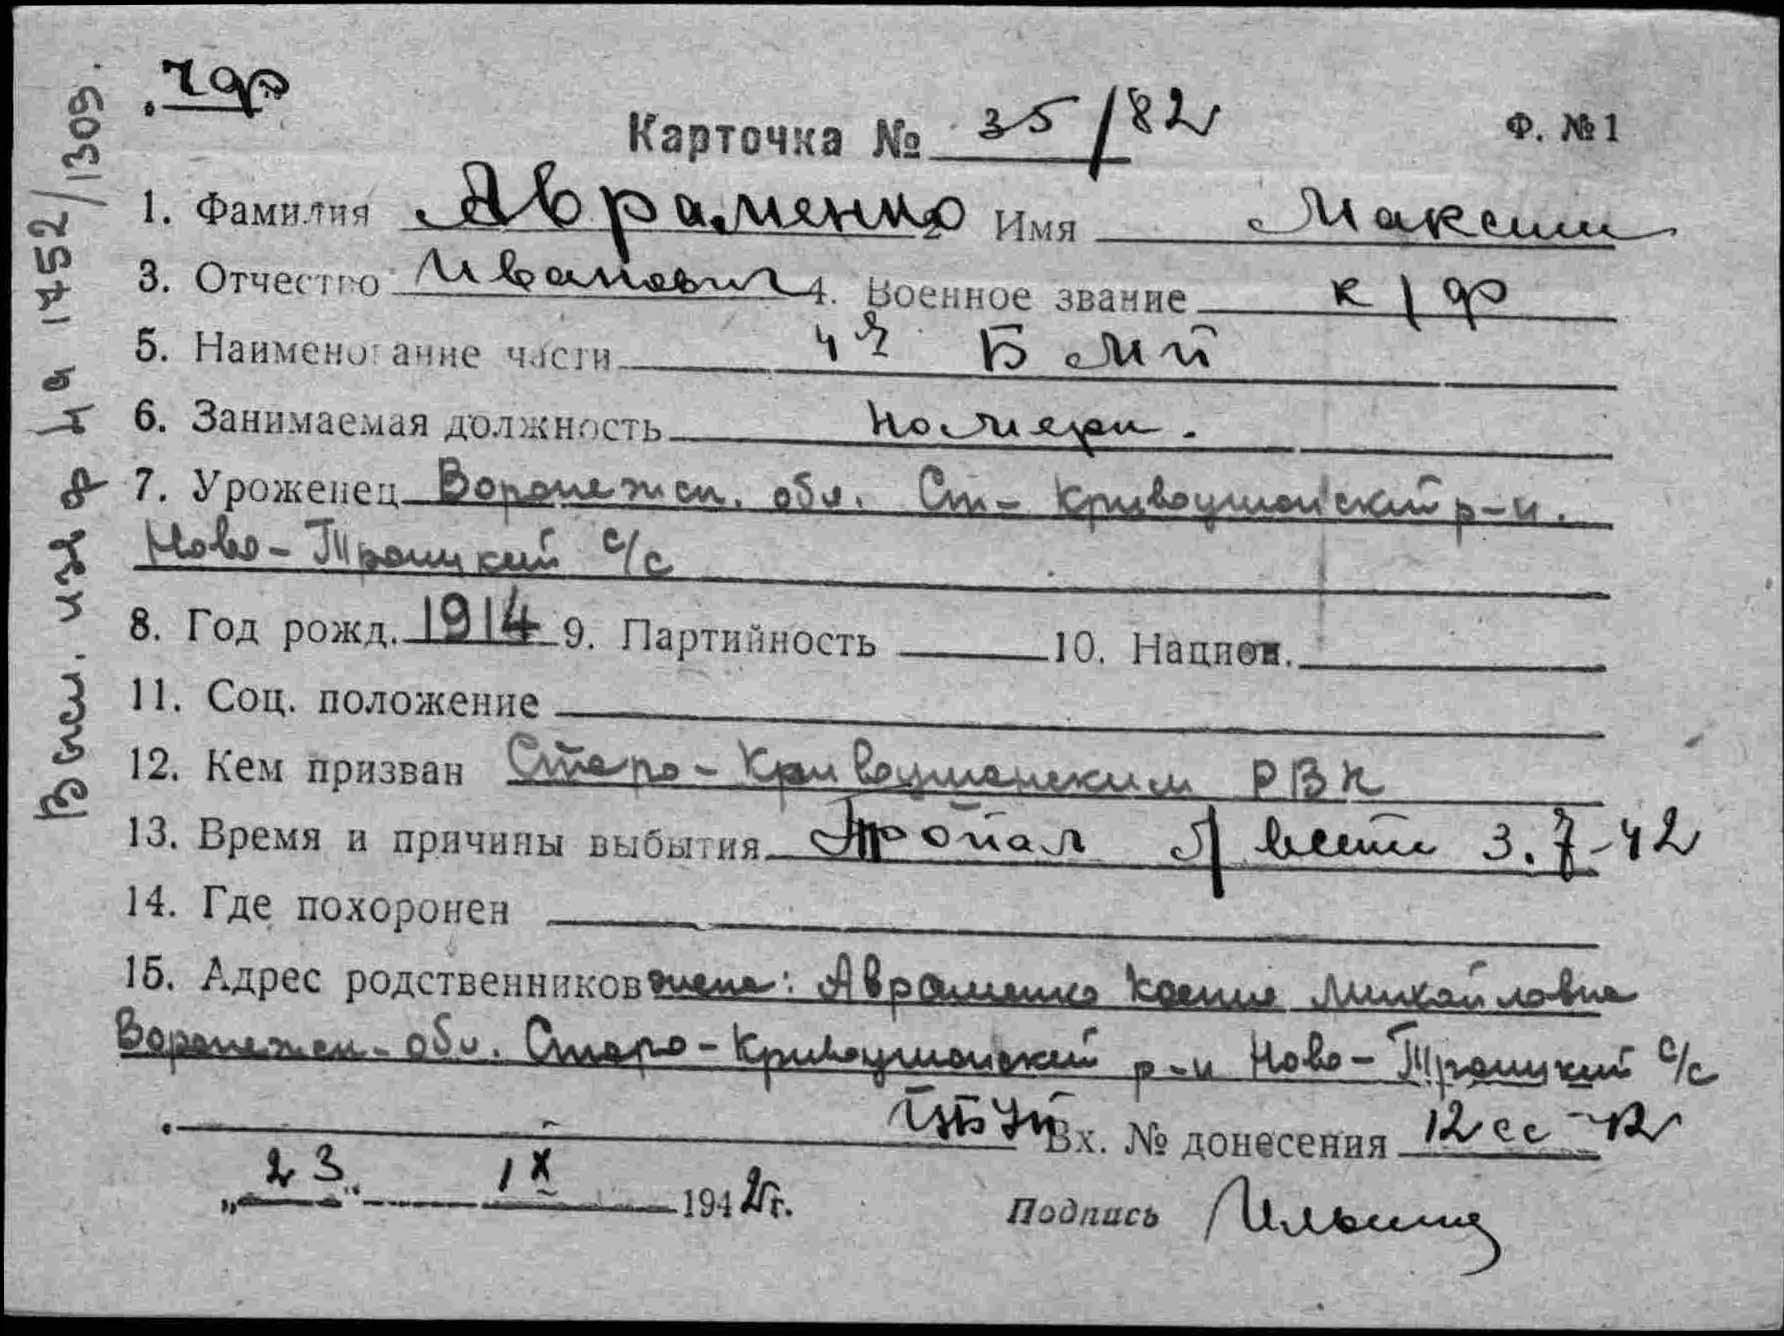 чф
Карточка № 35/82
Ф. №1
1. Фамилия Авраменко 2 Имя Максим
3. Отчество Иванович 4. Военное звание к/ф
5. Наименование части 42 БМП
6. Занимаемая должность комерн.
7. Уроженец Воронежск. обл. Ст-Кривоушанский р-н.
Ново-Троицкий с/с
8. Год рожд. 1914 9. Партийность 10. Национ.
11. Соц. положение
12. Кем призван Старо-Кривоушанским РВК
13. Время и причины выбытия Пропал б/вести 3.7-42
14. Где похоронен
15. Адрес родственников жена: Авраменко Ксения Михайловна
Воронежск-обл. Старо-Кривоушанский р-н Ново-Троицкий с/с
Вх. № донесения 12сс-42
„23“ IX 1942г.
Подпись Ильин
Вып. из на 1752/1309.